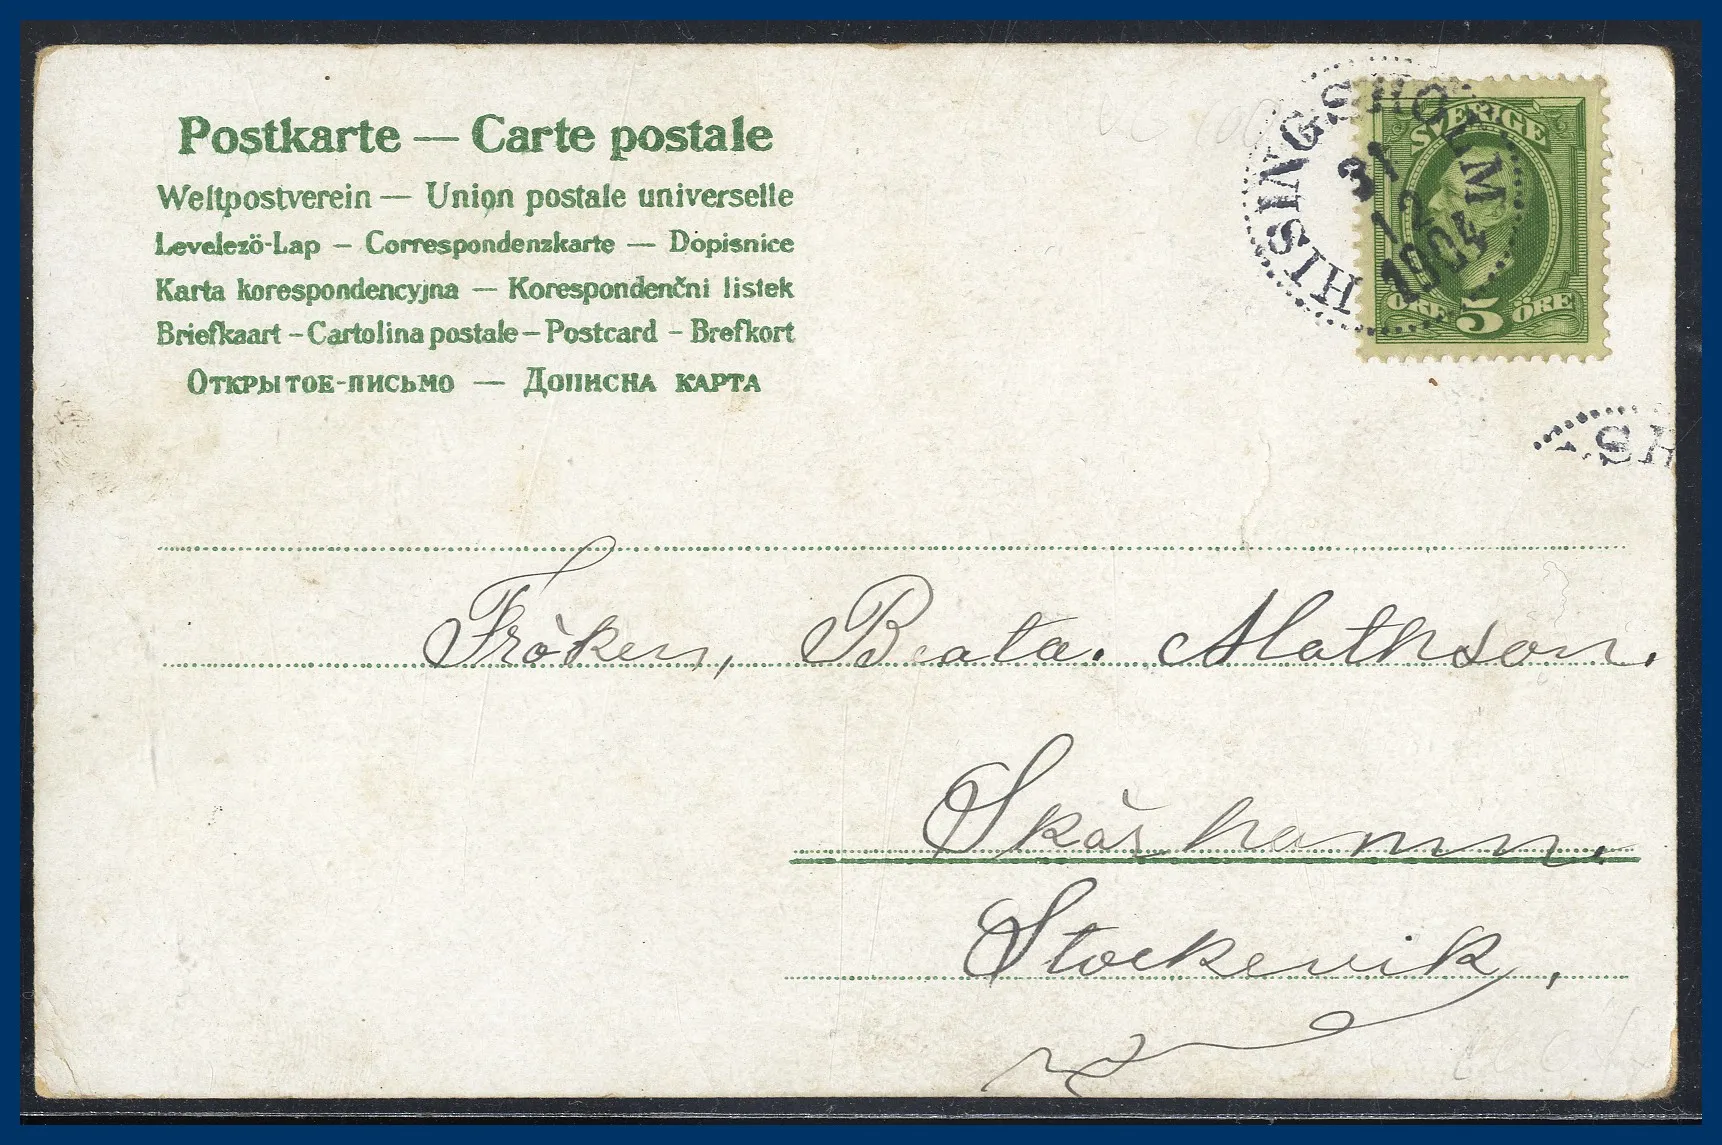 Postkarte — Carte postale
Weltpostverein — Union postale universelle
Levelező-Lap — Correspondenzkarte — Dopisnice
Karta korespondencyjna — Korespondenční listek
Briefkaart – Cartolina postale – Postcard – Brefkort
Открытое-письмо — Дописна карта
HISINGSHOLM
31
12
1904
SVERIGE
ÖRE 5 ÖRE
SH
Fröken, Beata. Mathson.
Skärhamn.
Stockevik,